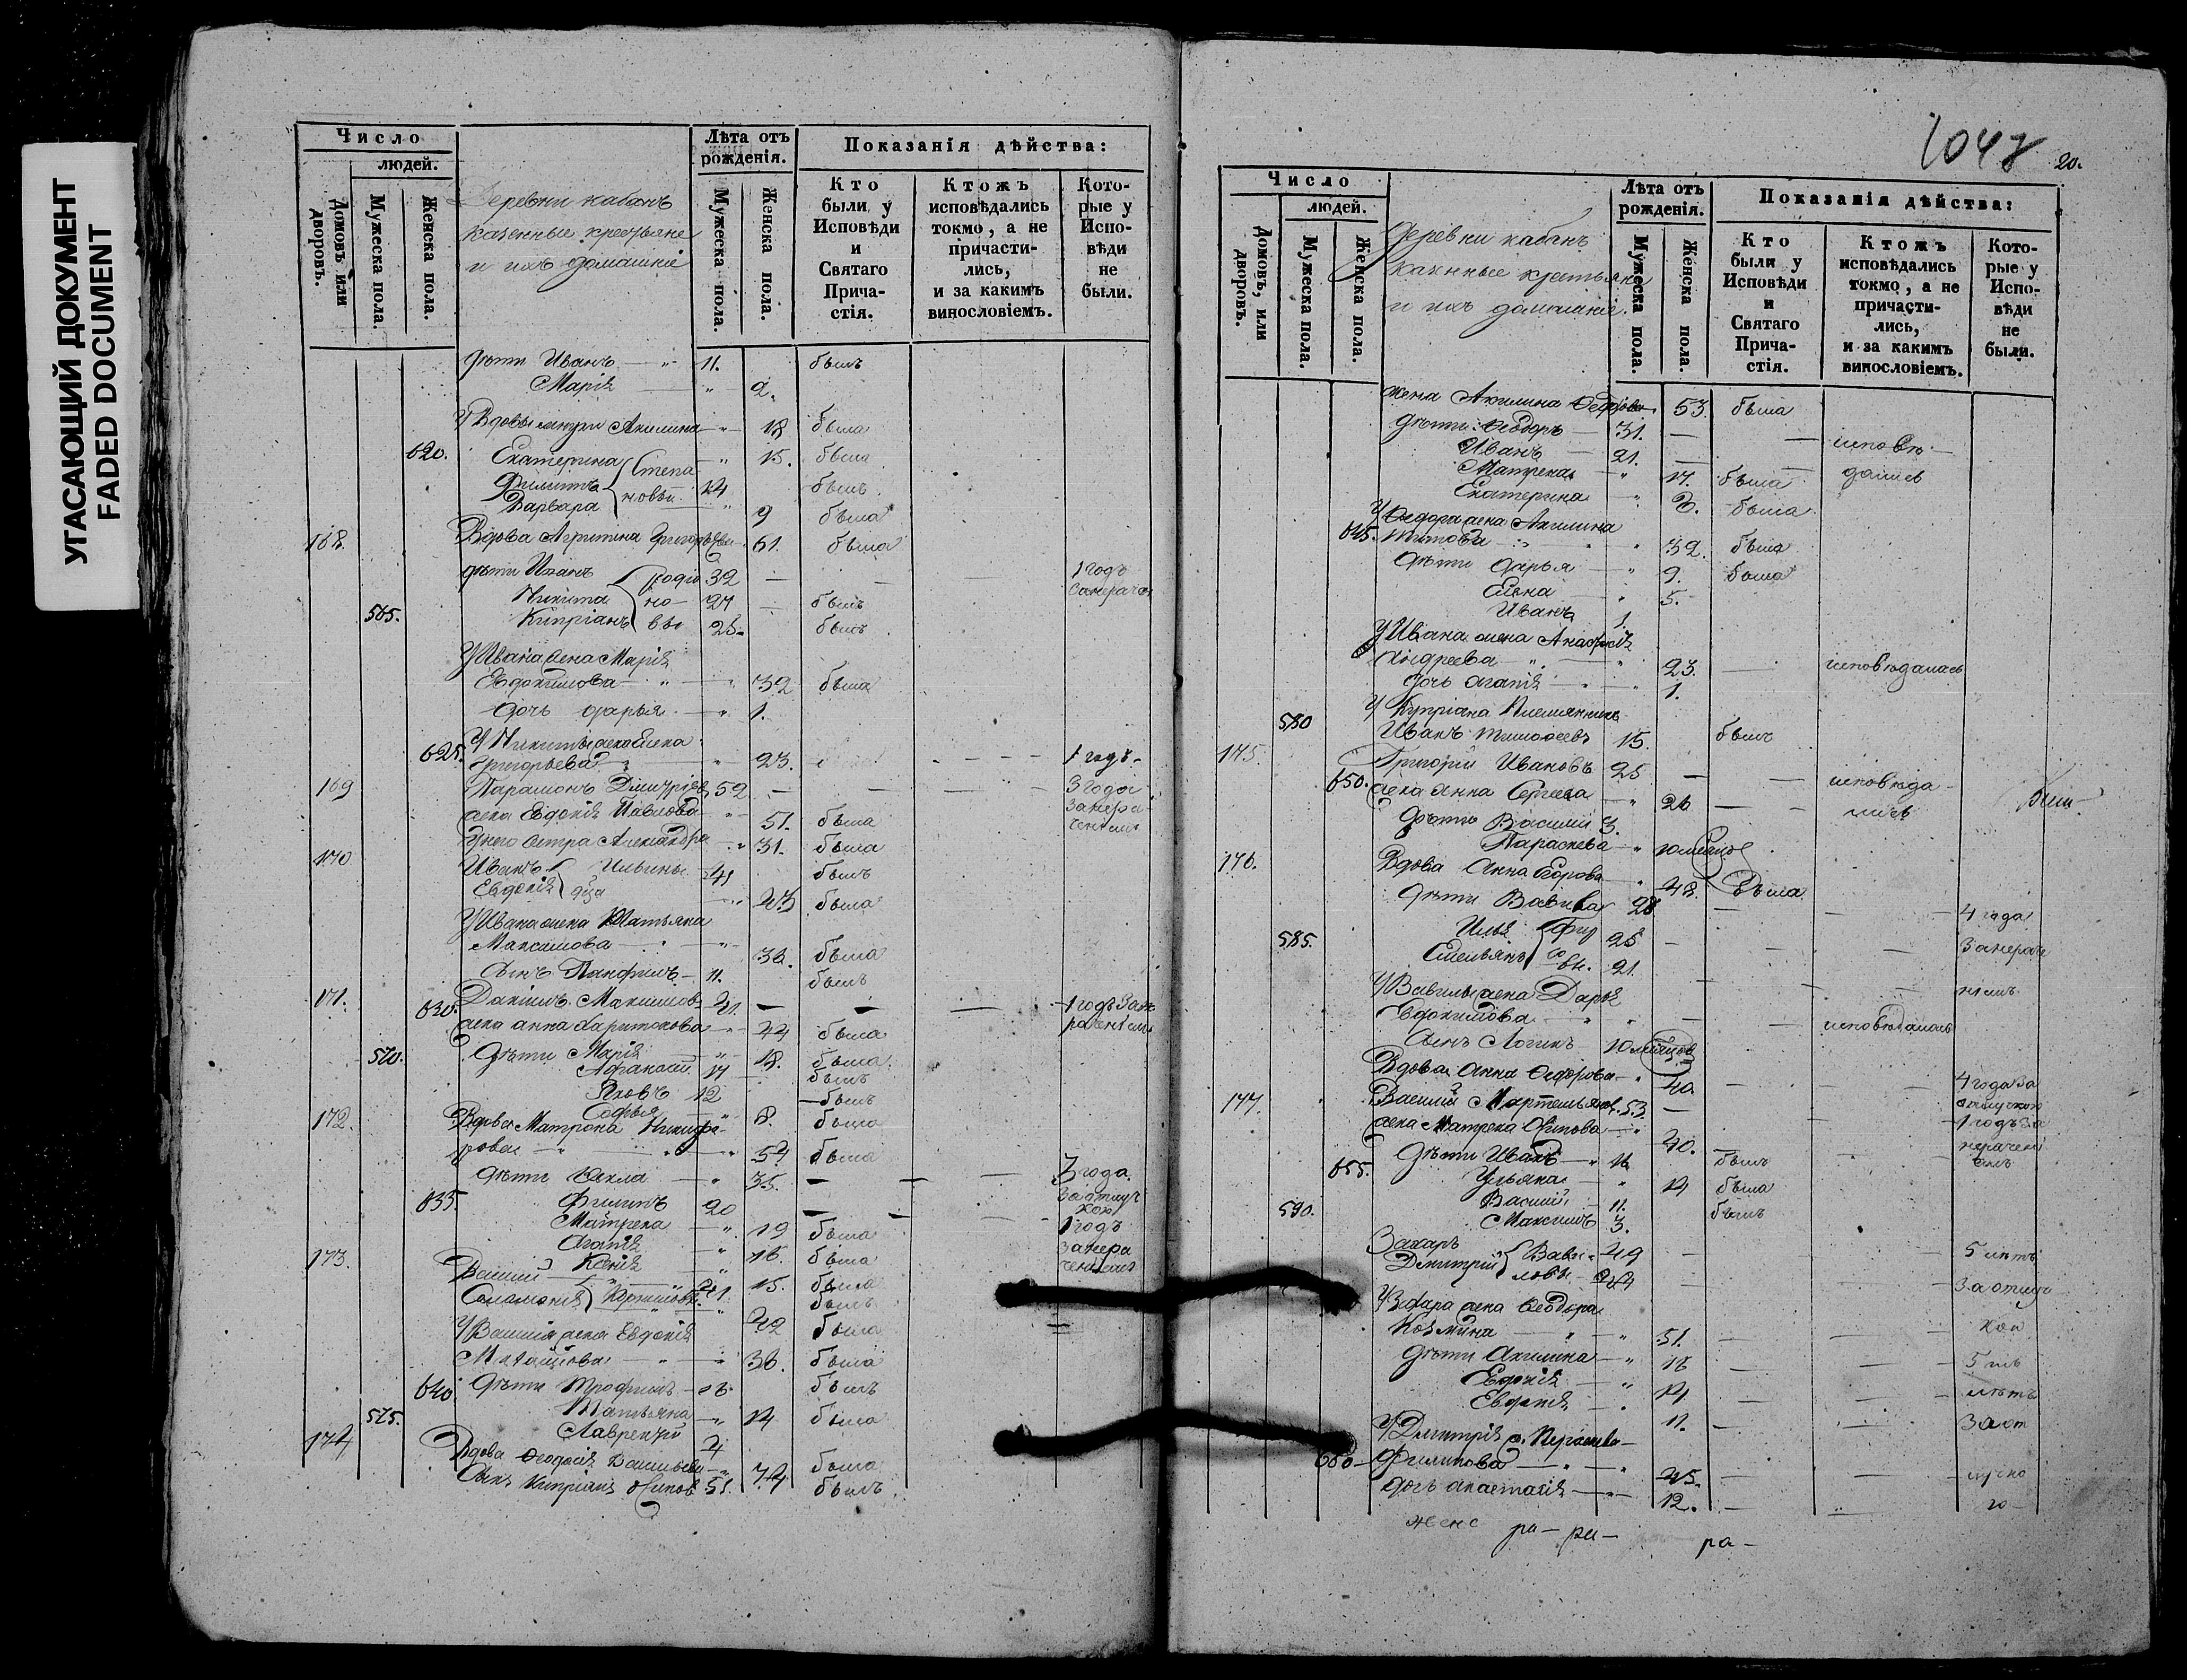 УГАСАЮЩИЙ ДОКУМЕНТ
FADED DOCUMENT
Число
людей.
Домовъ или дворовъ.
Мужеска пола.
Женска пола.
Деревни Кабанъ
казенные крестьяне
и ихъ домашніе
Лѣта отъ рожденія.
Мужеска пола.
Женска пола.
Показанія дѣйства:
Кто были у Исповѣди и Святаго Причастія.
Ктожъ исповѣдались токмо, а не причастились, и за какимъ винословіемъ.
Которые у Исповѣди не были.
дѣти Иванъ 11. былъ
Марія 2.
У Вдовы Акилина 18 была
620. Екатерина 15. была
Филиппъ Степановы 14 былъ
Варвара 9 была
168. Вдова Агрипина Григорьева 61. была
дѣти Иванъ 32 — — 1 годъ
Никита Родіоновы 27 былъ
565. Кипріанъ 25 былъ
У Ивана жена Марія
Евдокимова 32 была
дочь Дарья 1.
У Никиты жена Елена
625. Григорьева 23. 1 годъ
169 Парамонъ Дмитріевъ 52 — — 3 года
жена Евдокія Павлова 51. была
У него сестра Александра 31. была
170 Иванъ Ильины 41 былъ
Евдокія 43 была
У Ивана жена Татьяна
Максимова 36. была
Сынъ Панфилъ 11. былъ
171. Даніилъ Максимовъ 41. — — — 1 годъ за не
630. жена Анна Харитонова 44 была раченіемъ
дѣти Марія 18. была
570. Афанасій 17 былъ
Яковъ 12 былъ
Софья 8. была
172. Вдова Матрона Никифо-
рова 54 была
дѣти Фекла 35. — — 3 года
635. Филиппъ 20 — —
Матрена 19 была 1 годъ
Агапія 16. была
Ксенія 15. была
173. Василій 41 былъ
Соломонія 42 была
У Василія жена Евдокія
36. была
640 дѣти Трофимъ 16. былъ
Татьяна 14 была
575. Лаврентій 4
174 Вдова Феодосія Васильева 74 была
Сынъ Кипріанъ Осиповъ 51. былъ
1047
20.
Число
людей.
Домовъ, или дворовъ.
Мужеска пола.
Женска пола.
Деревни Кабанъ
казенные крестьяне
и ихъ домашніе.
Лѣта отъ рожденія.
Мужеска пола.
Женска пола.
Показанія дѣйства:
Кто были у Исповѣди и Святаго Причастія.
Ктожъ исповѣдались токмо, а не причастились, и за какимъ винословіемъ.
Которые у Исповѣди не были.
жена Акилина Федорова 53. была
дѣти: Феодоръ 31. — — исповѣ-
Иванъ 21. — — дались
Матрена 17. была
Екатерина была
У Федора жена Акилина
645. Титова 32. была
дѣти Дарья 9. была
Елена 5.
Иванъ 1.
У Ивана жена
Андреева 23. — исповѣдалась
дочь Агапія 1.
У Купріана племянникъ
580 Иванъ Тимофеевъ 15. былъ
175. Григорій Ивановъ 25 — — исповѣда-
650. жена Анна Сергеева 26 — — лись
дѣти Василій 3.
Параскева 10 мѣсяц
176. Вдова Анна Егорова 48. была
дѣти Вавила 28 — — 4 года
Илья 25 — — — за нераче
585. Емельянъ 21. — — ніемъ
У Вавилы жена Дарья
Евдокимова — — исповѣдалась
Сынъ Логинъ 10 мѣсяцов
Вдова Анна Федорова 40. — — 4 года за
177. Василій Мартемьяновъ 53 — отлучкою
жена Матрена Осипова 40. — — 1 годъ за
дѣти Иванъ 16 былъ нерачені
655. Ульяна 14 была емъ
Василій 11. былъ
590. Максимъ 3.
Захаръ 49 — — 5 лѣтъ
Дмитрій Вавиловы 44 — — за отлуч
У Захара жена Феодора
Козмина 51. — — кою
дѣти Акилина 18 — — 5 ть
Евдокія 14 — — лѣтъ
Евфимія 11. — — за от
У Дмитрія ж. Параскева
660 Филипова 45. — — лучко
дочь Анастасія 12. — — ю
женс ра- ра- ра-